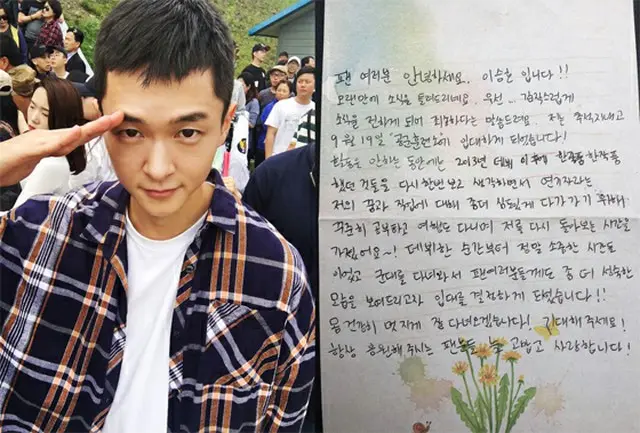 팬 여러분 안녕하세요.. 이승호 입니다!!
오랜만에 소식을 들려드리네요. 우선... 갑작스럽게
소식을 전하게 되어 죄송하다는 말씀드려요. 저는 추석지내고
9월 19일 훈련소에 입대하게 되었습니다!
활동을 안하는 동안에는 2013년 데뷔 이후에 한작품 한작품
했던 것들을 다시 한번 보고 생각하면서 연기자라는
저의 꿈과 직업에 대해 좀더 심도있게 다가가기 위해
꾸준히 공부하고 여행도 다니며 저를 다시 돌아보는 시간을
가졌어요~! 데뷔한 순간부터 정말 소중한 시간들
이었고 군대를 다녀와서 팬여러분들께도 좀 더 성숙한
모습을 보여드리고자 입대를 결정하게 되었습니다!!
몸 건강히 멋지게 잘 다녀오겠습니다! 기대해주세요!
항상 응원해주시는 팬분들 늘 고맙고 사랑합니다!